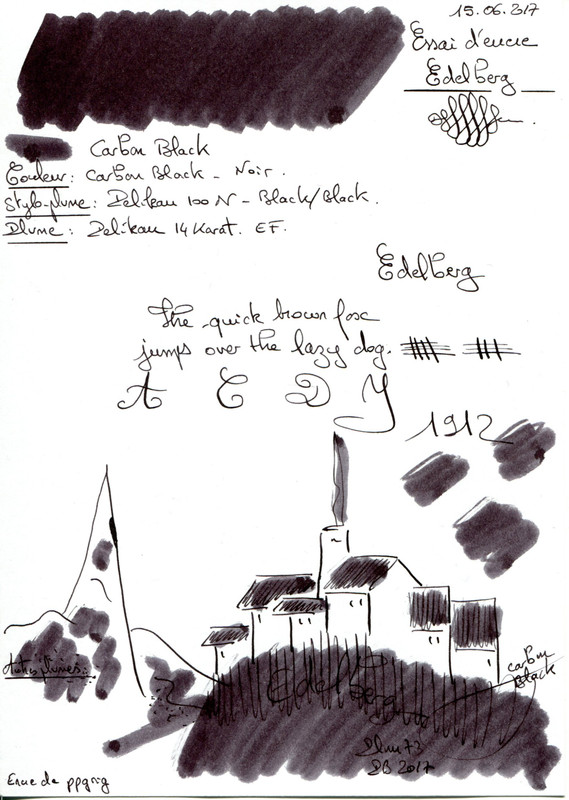 15.06.2017
Essai d'encre
Edelberg
Carbon Black
Couleur: Carbon Black - Noir.
Stylo-plume: Pelikan 100 N - Black/Black.
Plume: Pelikan 14 Karat. EF.
Edelberg
The quick brown fox
jumps over the lazy dog.
A C D Y
1912
Autres plumes:
Edelberg
carbon
Black
Plum73
PB 2017
Encre de